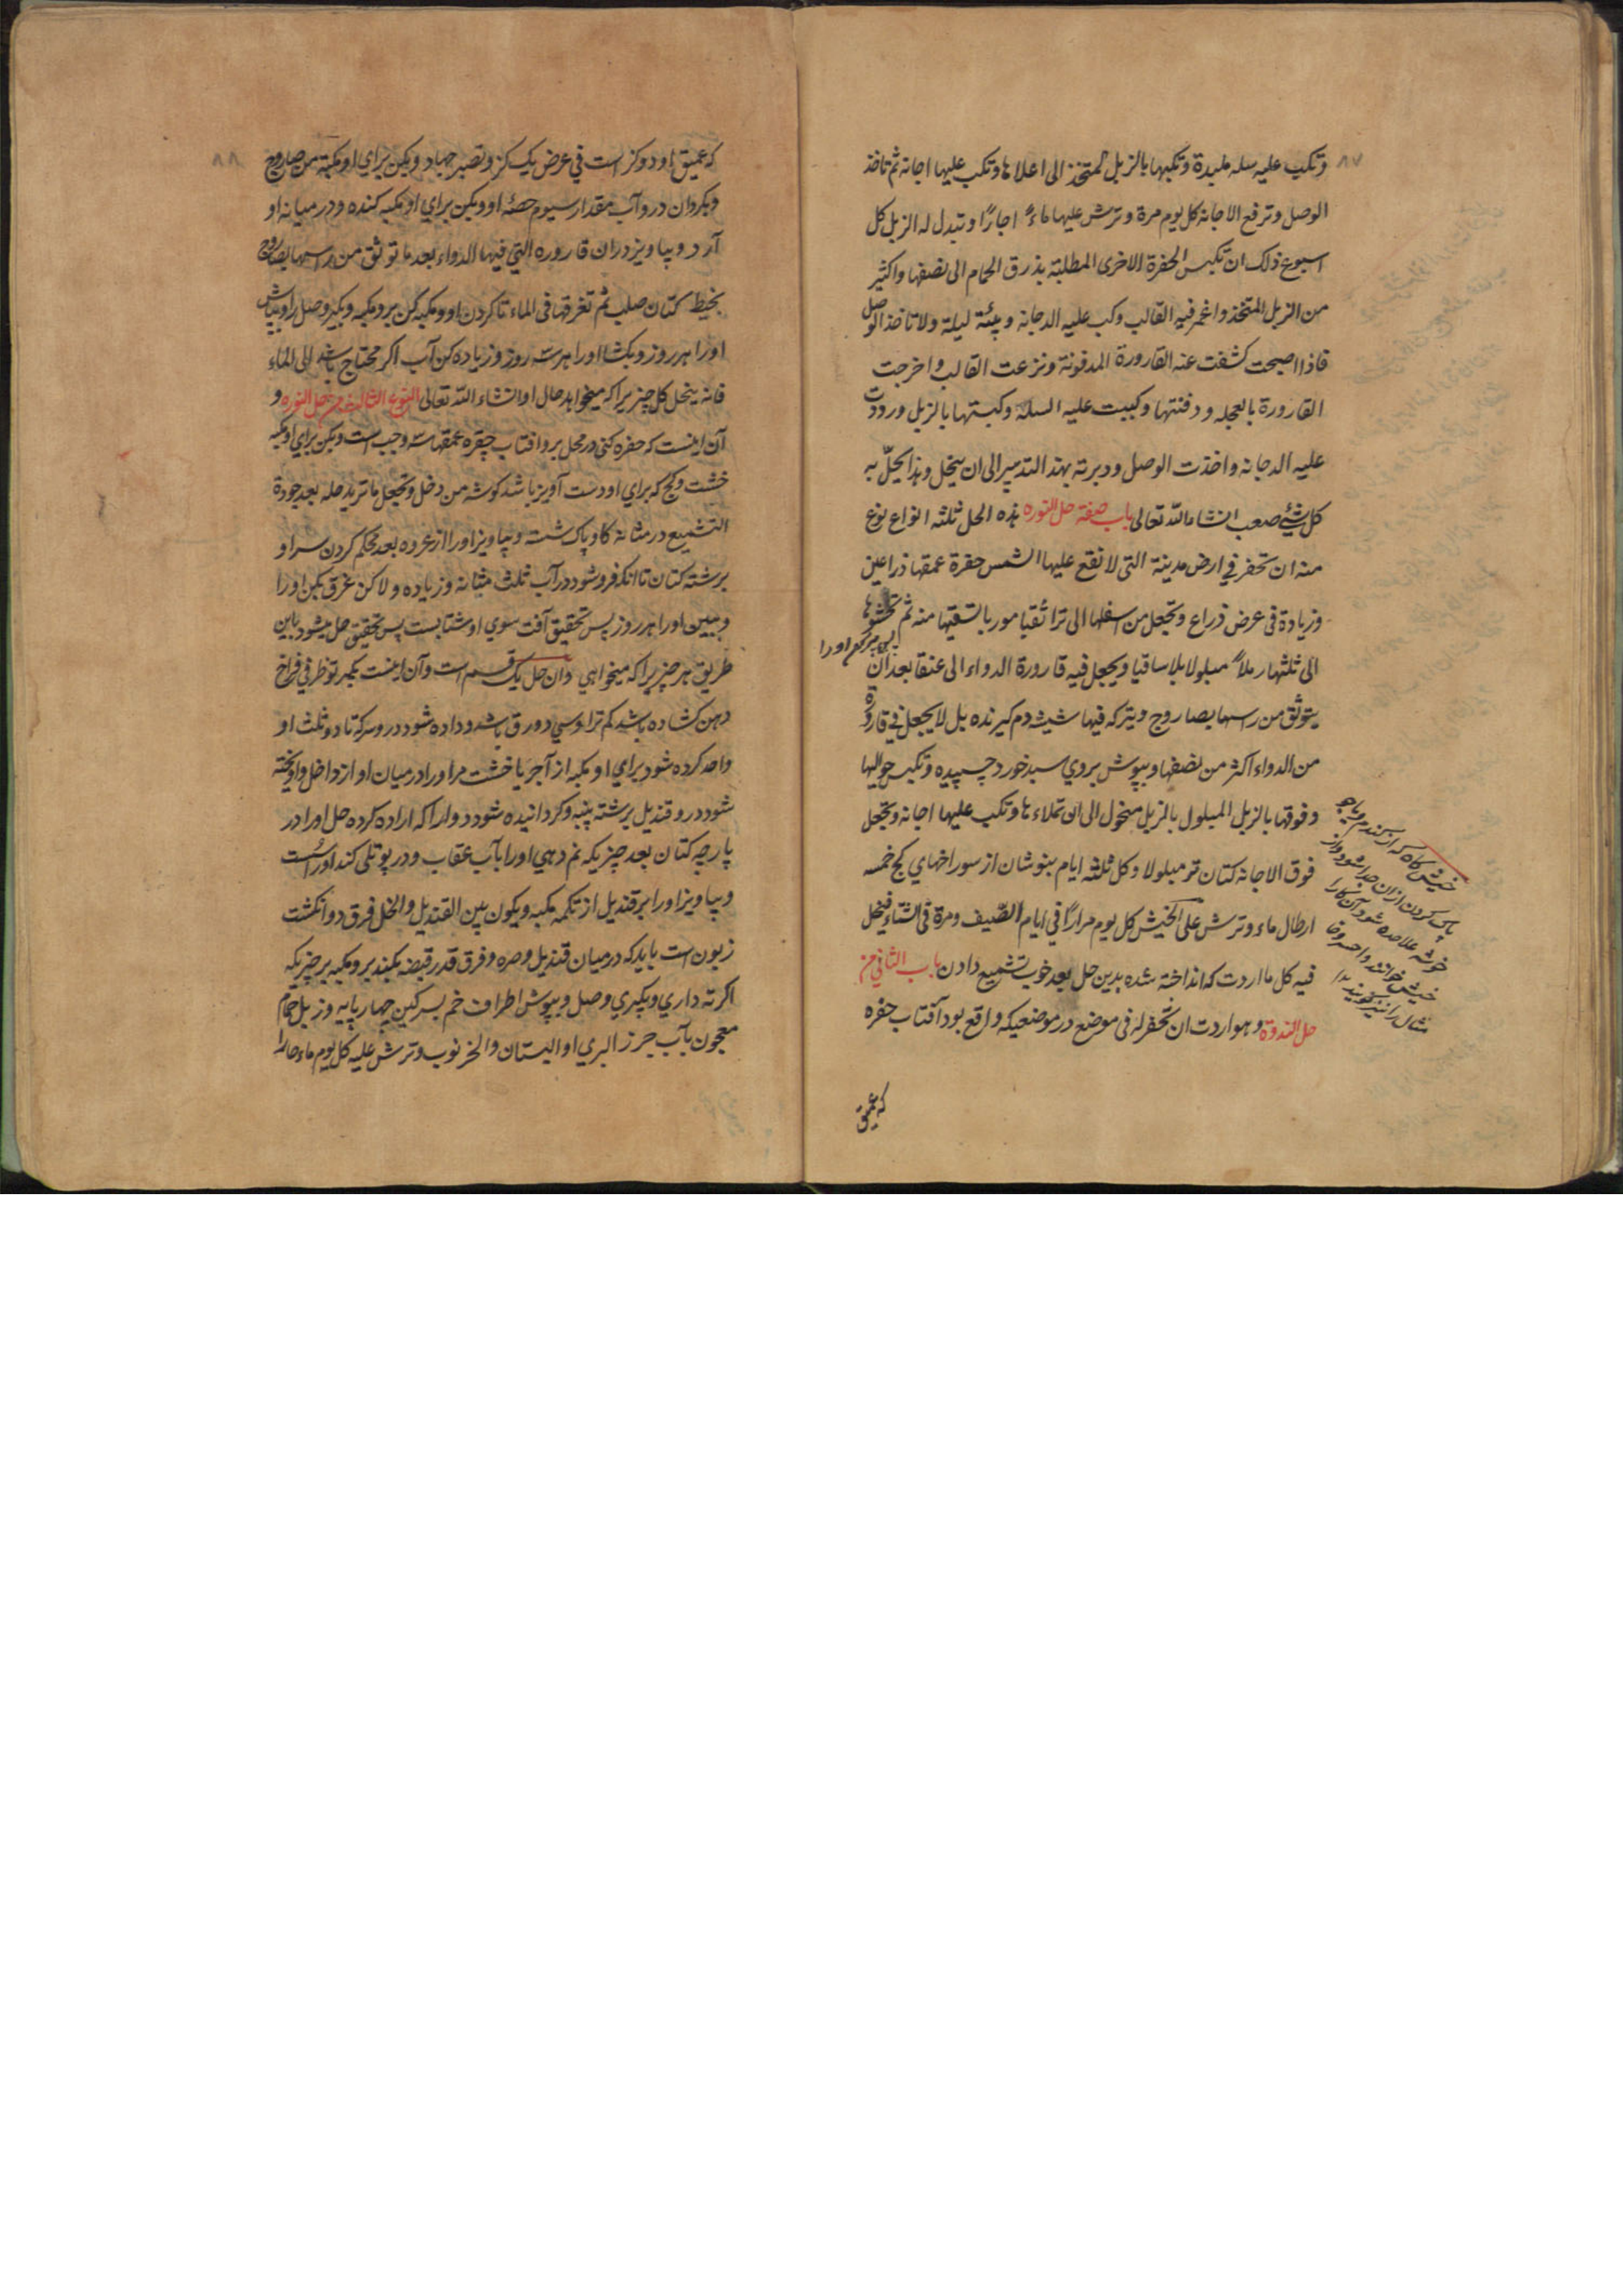 ٨٧
وتکب علیه سله ملبدة وتکبها بالزبل المتخذ الی اعلاها وتکب علیها اجانه ثم تاخذ
الوصل وترفع الاجانه کل یوم مرة وترش علیها ماءً اجارًا وتبدل له الزبل کل
اسبوع ذلک ان تکبس الحفرة الاخری المطلیة بذرق الحمام الی نصفها واکثیر
من الزبل المتخذ واغمر فیه القالب وکب علیه الدجانه وبیئة لیلة ولا تاخذ الوصل
فاذا اصبحت کشفت عنه القارورة المدفونة ونزعت القالب واخرجت
القارورة بالعجله ودفنتها وکببت علیه السله وکبتها بالزبل ورددت
علیه الدجانه واخذت الوصل ودبرته بهذا التدبیر الی ان ینحل وهذا یحلّ به
کل شیٔ صعب انشاءالله تعالی باب صفة حل النوره هذه الحل ثلثه انواع نوع
منه ان تحفر فی ارض مدینة التی لا تقع علیها الشمس حفرة عمقها ذراعین
وزیادة فی عرض ذراع وتجعل من اسفلها الی ترا ثقبا مور بالتسقیها منه ثم تحشوها
الی ثلثها رملاً مبلولا بلا ساقیا ویجعل فیه قارورة الدواء الی عنقا بعد ان
یتوثق من راسها بصاروج ویترکه فیها شیشه دم کیرنده بل لا یجعل فی قاروة
من الدواء اکثر من نصفها وبپوش بروی سبد خورد چسپیده وتکبس حوالیها
وفوقها بالزبل المبلول بالزبل منخول الی ان تملاءها وتکب علیها اجانه وتجعل
فوق الاجانه کتان تر مبلولا وکل ثلثه ایام بنوشان از سوراخهای کج خمسه
ارطال ماء وترش علی الخیش کل یوم مرارًا فی ایام الصّیف ومرة فی الشتاء فینحل
فیه کل ما اردت که انداخته شده بدین حل بعد خوب تشمیع دادن باب الثانی من
حل الندوة وهو اردت ان تحفر له فی موضع در موضعیکه واقع بود آفتاب حفره
که عمیق
خیش کاه که از کندم و یا جو
پاک کردن ازان جدا شود واز
خوشه علاحده شود آن کاه را
خیش خوانند
٨٨
که عمیق او دو کز است فی عرض یک کز وتصیر جهاد وبکن برای او مکبه من صاروج
وبکردان درو آب مقدار سیوم حصّه او وبکن برای او مکبه کنده ودر میانه او
آرد وبیاویز دران قاروره التی فیها الدواء بعد ما توثق من راسها بصاروج
بخیط کتان صلب ثم تغرقها فی الماء تا کردن او ومکبه کن برو مکبه وبکیر وصل را وبپاش
او را هر روز وبکشا او را هر سه روز وزیاده کن آب اکر محتاج باشد الی الماء
فانه ینحل کل چیزیرا که میخواهد حال او انشاء الله تعالی النوع الثالث من حل النوره و
آن اینست که حفره کنی در محل برو افتاب حفره عمقها سه وجب است وبکن برای او مکبه
خشت وکچ که برای او دست آویز باشد کوشه من دخل وتجعل ما ترید حله بعد جودة
التشمیع در مثانه کاو پاک شسته وبیاویز او را از عروه بعد محکم کردن سر او
برشته کتان تا انکه فرو شود در آب ثلث مثانه وزیاده ولاکن غرق مکن او را
وببین او را هر روز پس تحقیق آفت سوی او شتابست پس تحقیق حل میشود باین
طریق هر چیزیرا که میخواهی دان حل یک قسم است وآن اینست بکیر تو ظرفی فراخ
دهن کشاده باشد کم ترا وسی دورق باشد وداده شود درو سرکه تا دو ثلث او
واحد کرده شود برای او مکبه از آجر یا خشت مر او را در میان او از داخل واویخته
شود درو قندیل برشته پنبه وکردانیده شود دوارا که اراده کرده حل او را در
پارچه کتان بعد چیزیکه نم دهی او را بآب عقاب ودر پوتلی کند او راست
وبیاویز او را بر قندیل از تکمه مکبه ویکون بین القندیل والخل فرق دو انکشت
زبون است باید که درمیان قندیل وصره وفرق قدر قبضه بکبند برو مکبه بر چیزیکه
اکرته داری وبکیری وصل وبپوش اطراف خم بسرکین چهارپایه وزبل حمام
معجون بآب جرز البری او البستان والخرنوب وترش علیه کل یوم ماء حارا